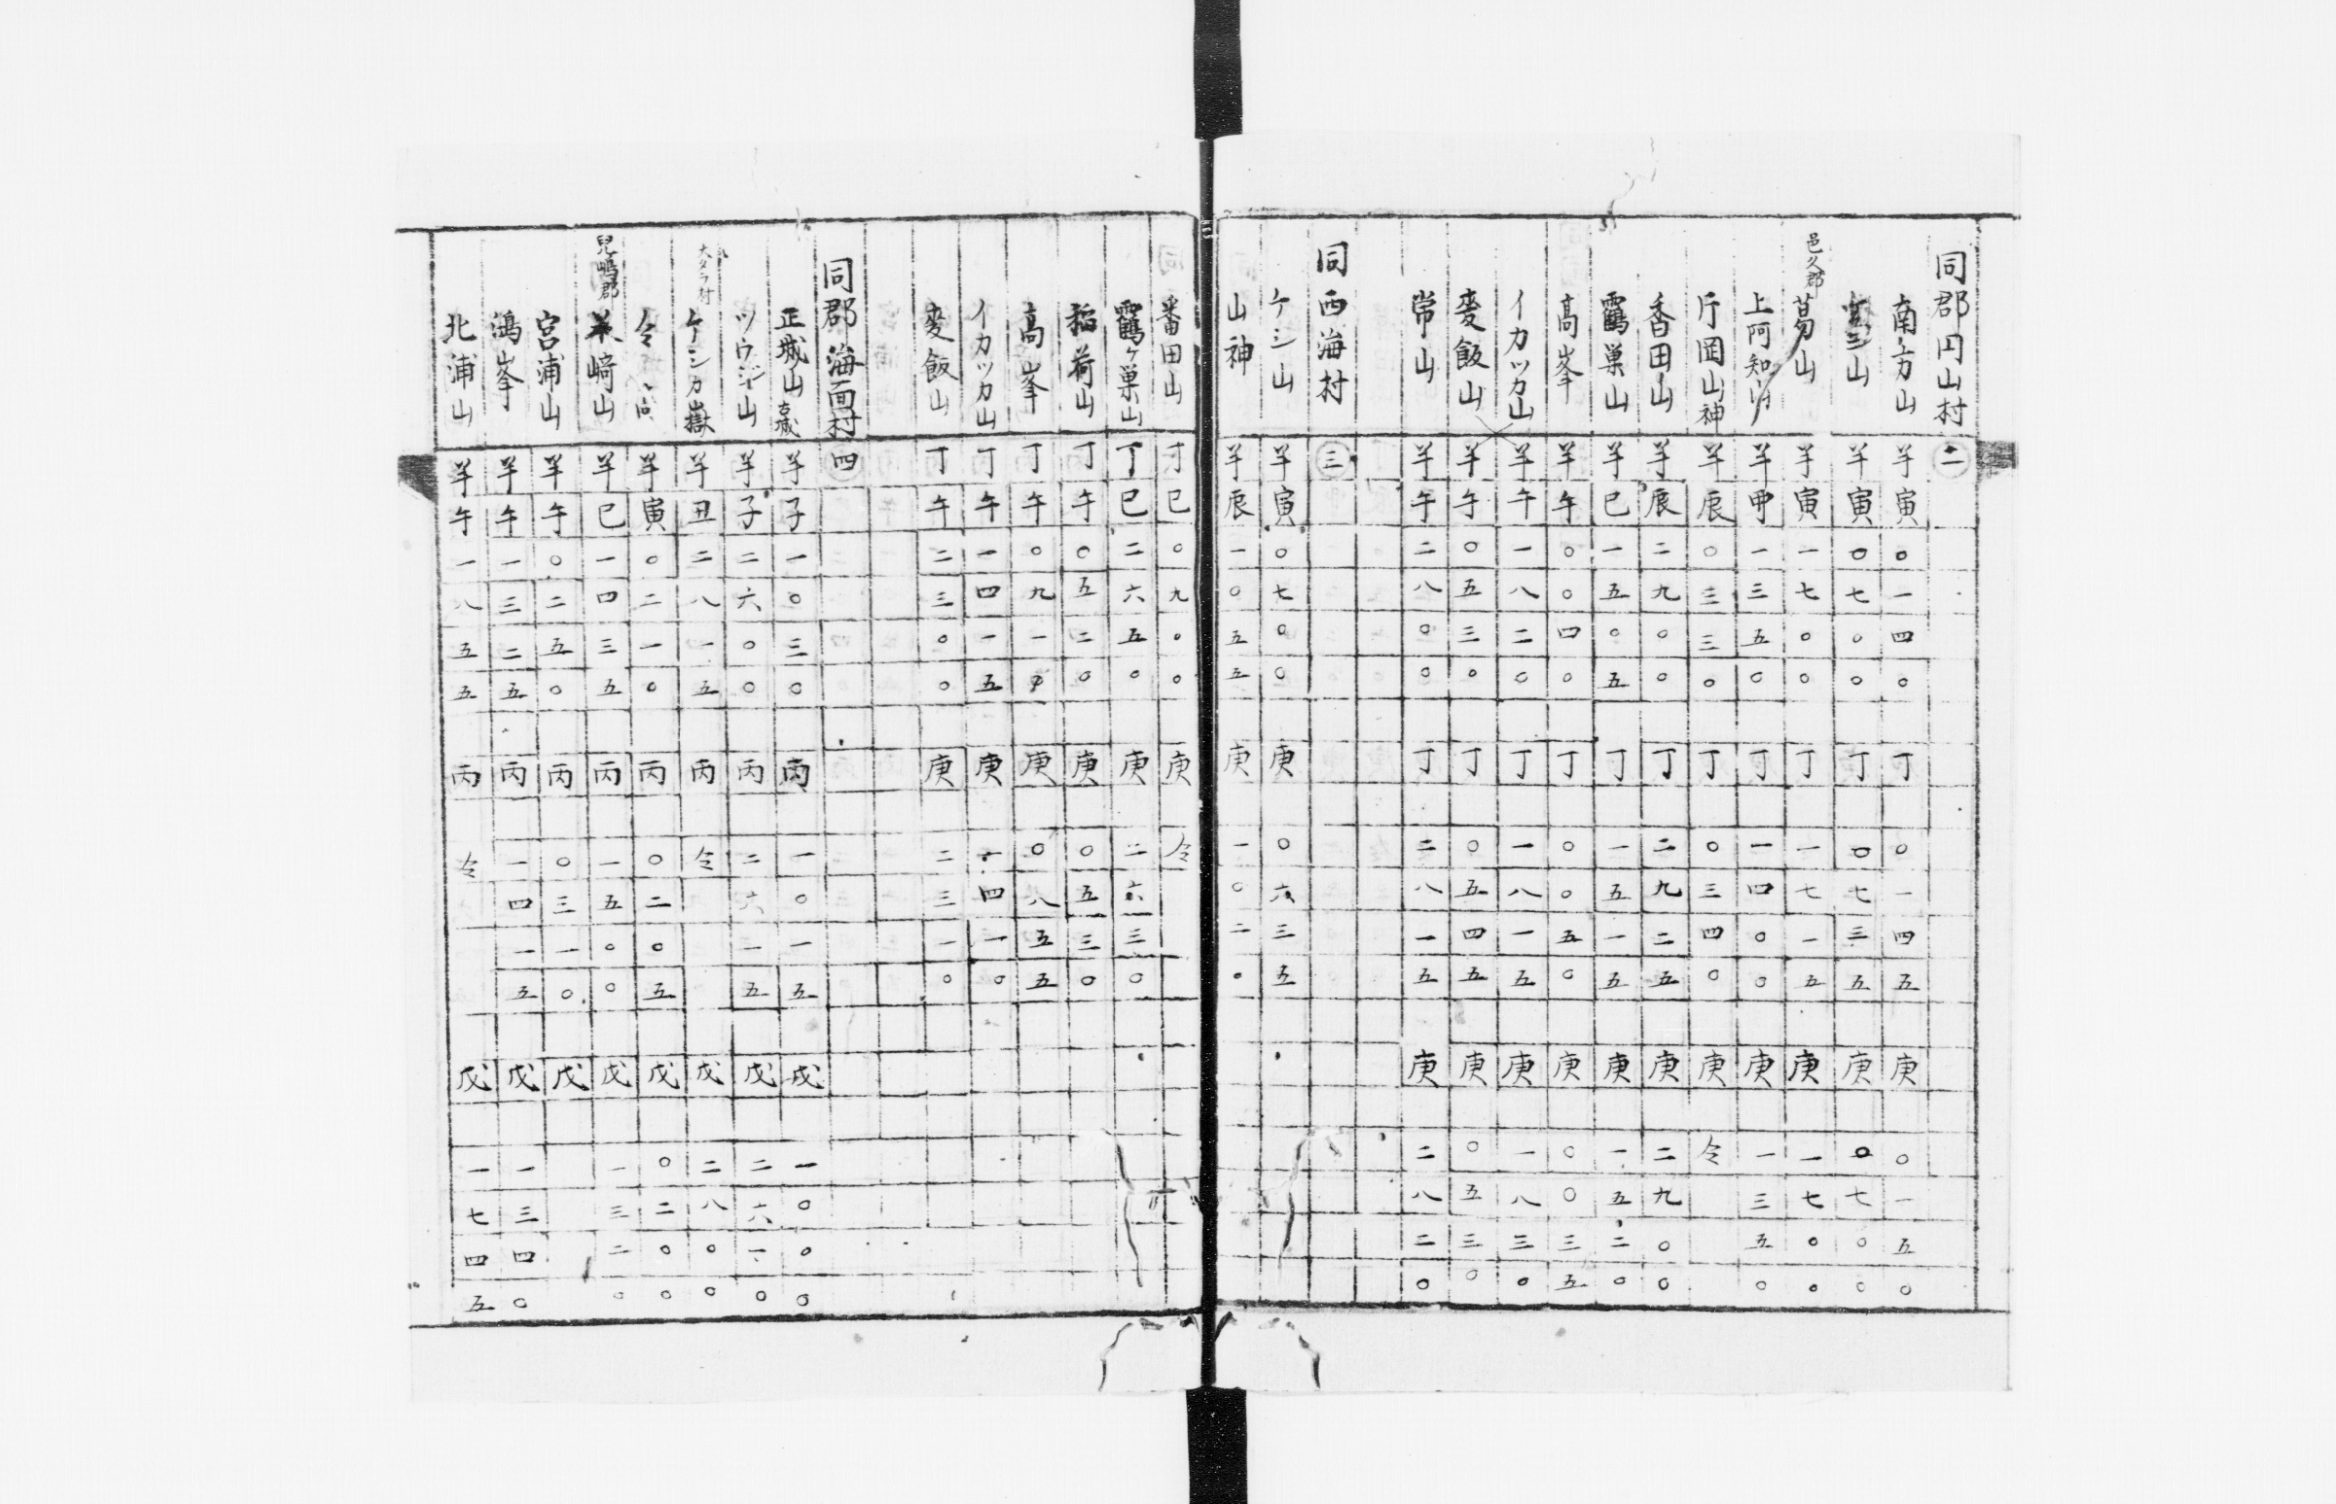 同郡円山村 二
南方山 羊寅〇一四〇 丁〇一四五 庚〇一五〇
山 羊寅〇七〇〇 丁〇七三五 庚〇七〇〇
邑久郡 葛山 羊寅一七〇〇 丁一七一五 庚一七〇〇
上阿知 羊申一三五〇 丁一四〇〇 庚一三五〇
片岡山神 羊辰〇三三〇 丁〇三四〇 庚仝
香田山 羊辰二九〇〇 丁二九二五 庚二九〇〇
鶴巣山 羊巳一五〇五 丁一五一五 庚一五二〇
高峯 羊午〇〇四〇 丁〇〇五〇 庚〇〇三五
イカツカ山 羊午一八二〇 丁一八一五 庚一八三〇
麥飯山 羊午〇五三〇 丁〇五四五 庚〇五三〇
常山 羊午二八〇〇 丁二八一五 庚二八二〇
同西海村 三
ケシ山 羊寅〇七〇〇 庚〇六三五
山神 羊辰一〇五五 庚一〇二〇
番田山 丁巳〇九〇〇 庚仝
鶴ケ巣山 丁巳二六五〇 庚二六三〇
稲荷山 丁午〇五二〇 庚〇五三〇
高峯 丁午〇九一〇 庚〇八五五
イカツカ山 丁午一四一五 庚一四一〇
麥飯山 丁午二三〇〇 庚二三一〇
同郡海面村 四
正城山 古城 羊子一〇三〇 丙一〇一五 戊一〇〇〇
ツウジ山 羊子二六〇〇 丙二六一五 戊二六一〇
大タラ村 ケシカ嶽 羊丑二八一五 丙仝 戊二八〇〇
仝 羊寅〇二一〇 丙〇二〇五 戊〇二〇〇
児嶋郡 米﨑山 羊巳一四三五 丙一五〇〇 戊一三二〇
宮浦山 羊午〇二五〇 丙〇三一〇 戊
鴻峯 羊午一三二五 丙一四一五 戊一三四〇
北浦山 羊午一八五五 丙仝 戊一七四五